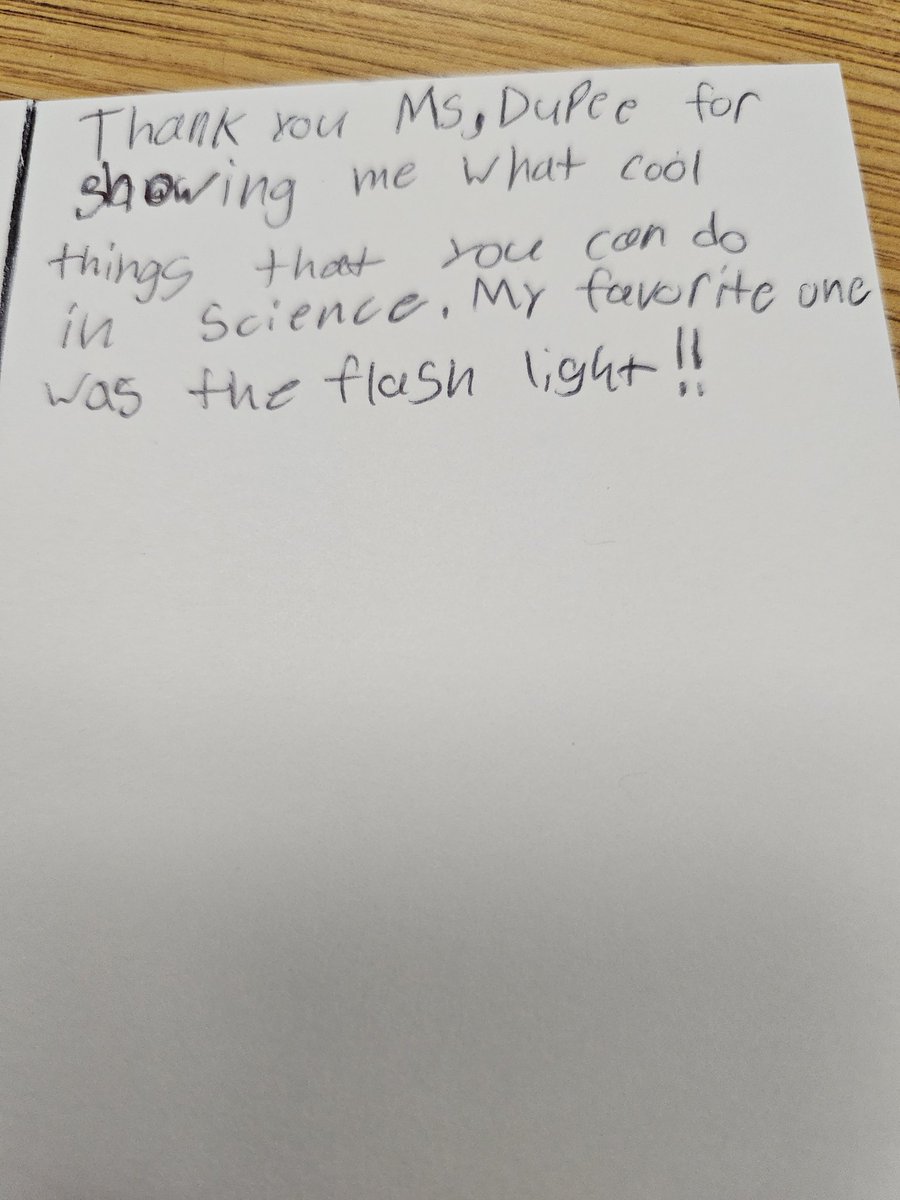 Thank you Ms, DuPee for
showing me what cool
things that you can do
in Science. My favorite one
was the flash light!!